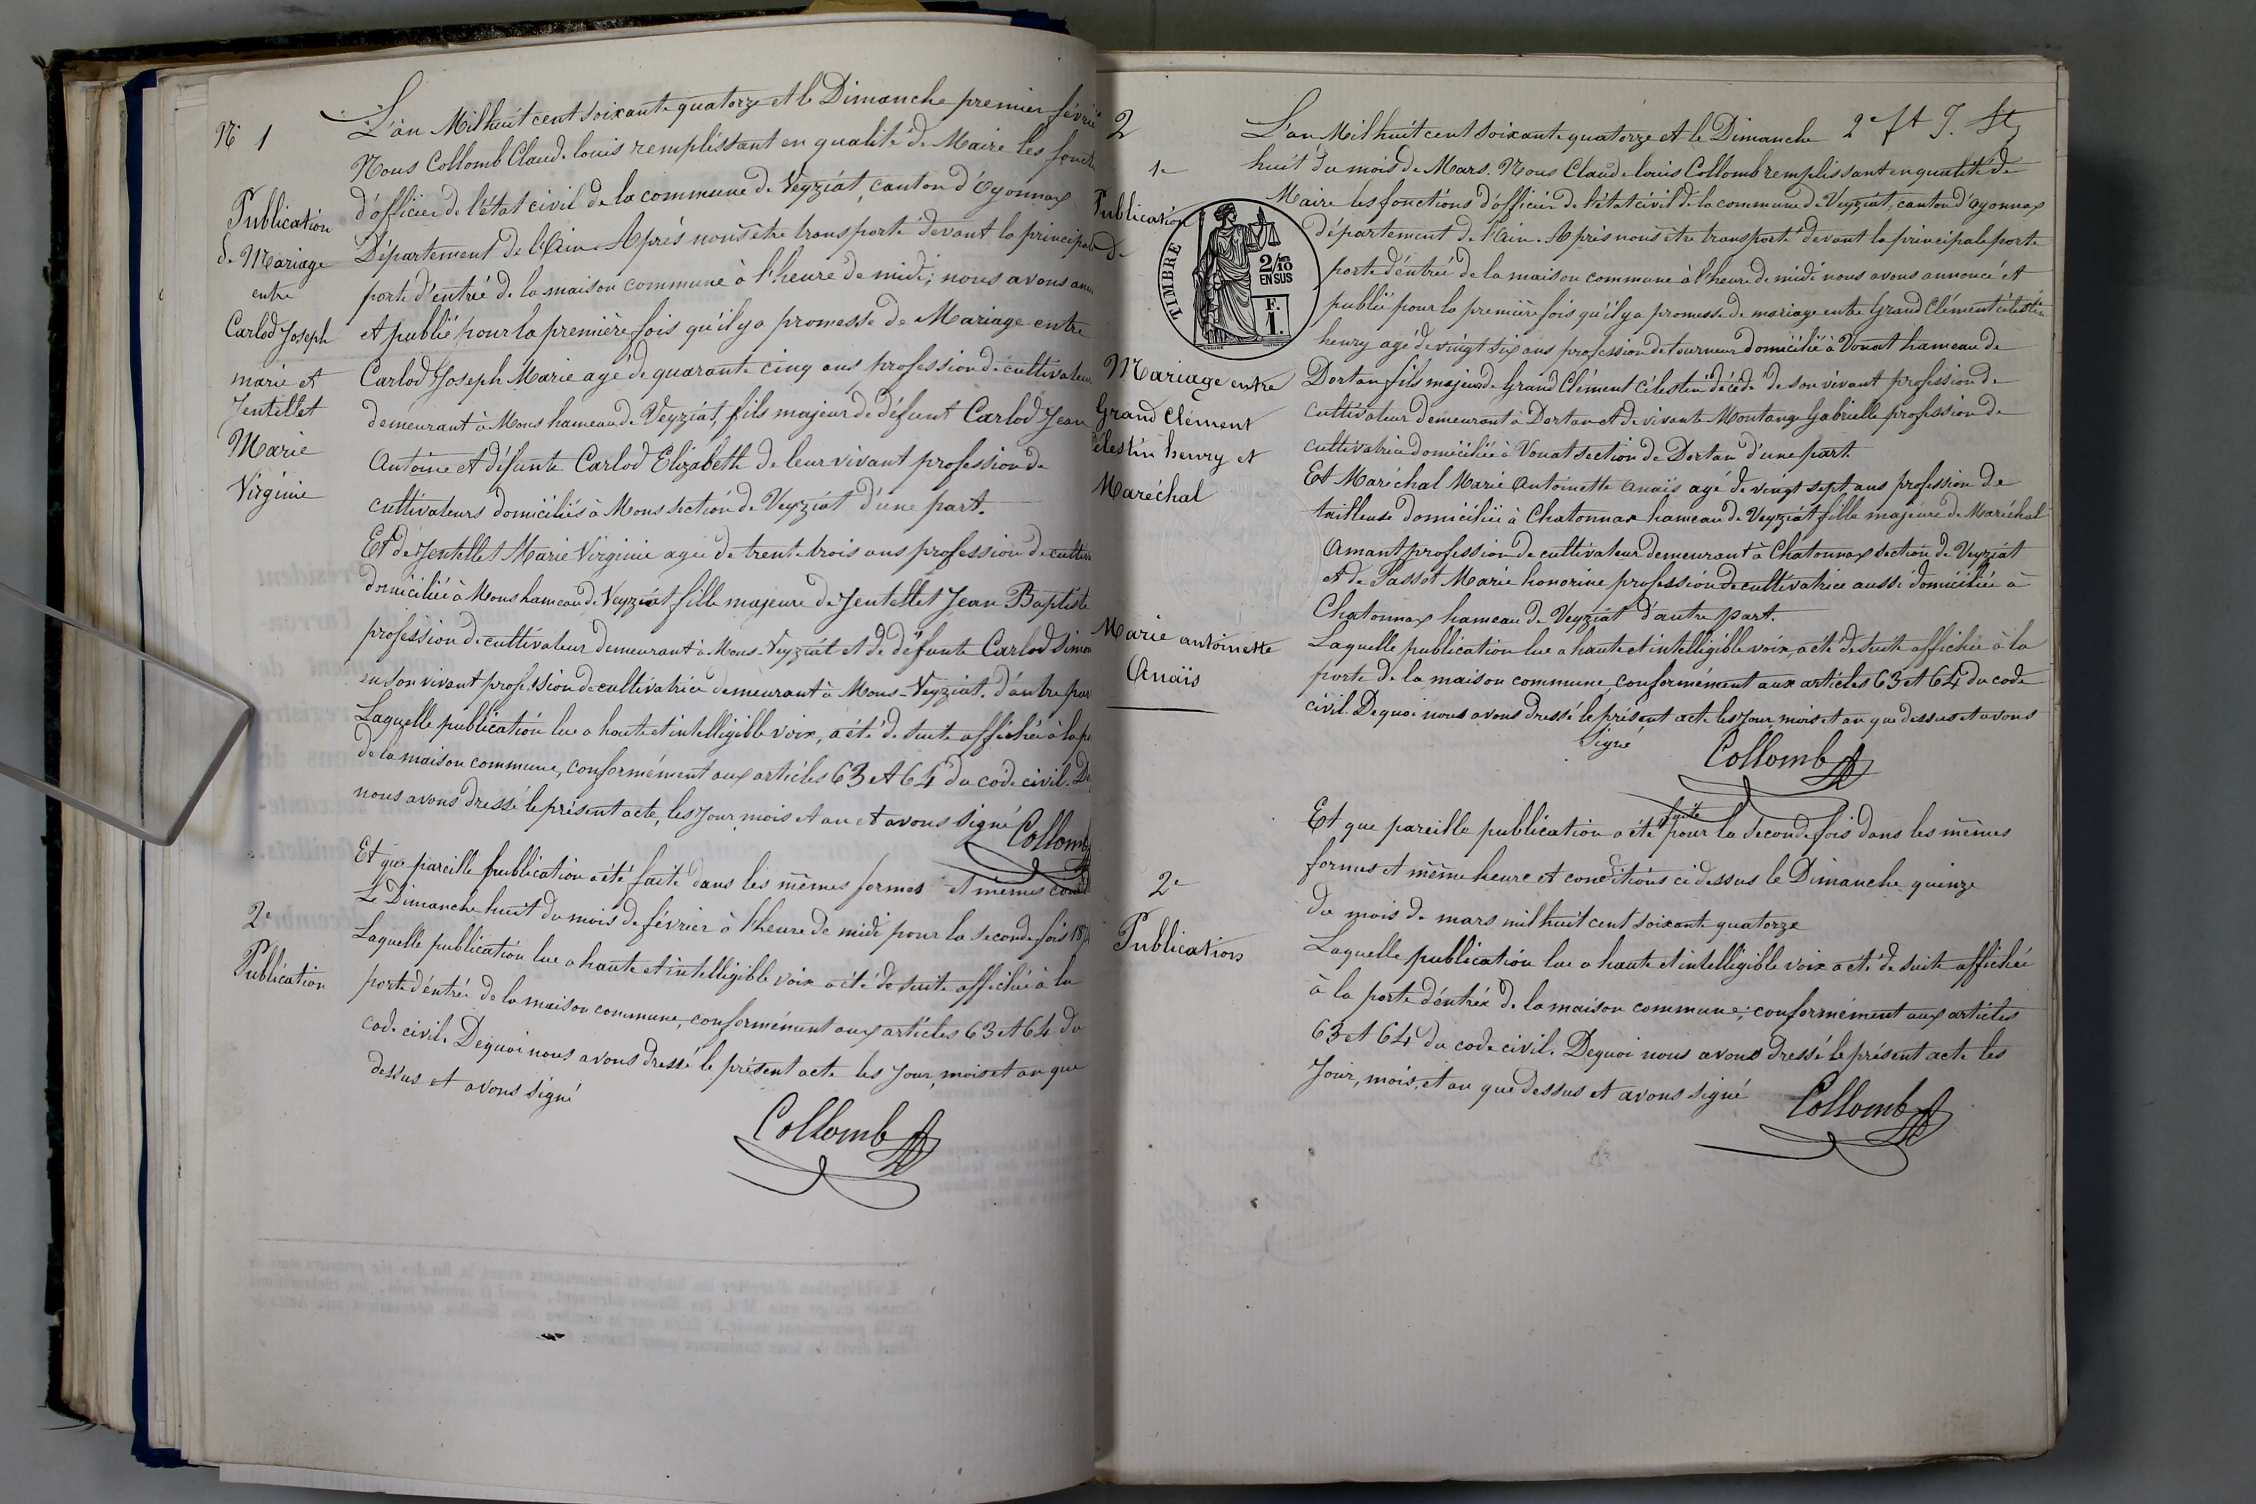 N° 1
Publication
de Mariage
entre
Carlod Joseph
marie et
Jentellet
Marie
Virginie
L'an Mil huit cent soixante quatorze et le Dimanche premier
Nous Collomb Claude louis remplissant en qualité de Maire les
d'officier de l'état civil de la commune de Veyziat, canton d'Oyonnax
Département de l'Ain. Après nous être transporté devant la principale
porte d'entrée de la maison commune à l'heure de midi; nous avons
et publié pour la première fois qu'il y a promesse de Mariage entre
Carlod Joseph Marie agé de quarante cinq ans profession de cultivateur
demeurant à Mons hameau de Veyziat, fils majeur de défunt Carlod Jean
Antoine et défunte Carlod Elizabeth de leur vivant profession de
cultivateurs domiciliés à Mons section de Veyziat d'une part.
Et de Jentellet Marie Virginie agée de trente trois ans profession de
domiciliée à Mons hameau de Veyziat fille majeure de Jentellet Jean Baptiste
profession de cultivateur demeurant à Mons-Veyziat et de défunte Carlod
en son vivant profession de cultivatrice demeurant à Mons-Veyziat. d'autre
Laquelle publication lue a haute et intelligible voix, a été de suite affichée à la
de la maison commune, conformément aux articles 63 et 64 du code civil.
nous avons dressé le présent acte, les jour mois et an et avons signé Collomb
Et que pareille publication a été faite dans les mêmes formes et mêmes
2e
Publication
Le Dimanche huit du mois de février à l'heure de midi pour la seconde fois
Laquelle publication lue a haute et intelligible voix a été de suite affichée à la
porte d'entrée de la maison commune, conformément aux articles 63 et 64 du
code civil. De quoi nous avons dressé le présent acte les jour, mois et an que
dessus et avons signé
Collomb
2
1e
Publication
de
TIMBRE
2/10
EN SUS
F.
1.
Mariage entre
Grand Clément
Célestin henry et
Maréchal
Marie antoinette
Anaïs
L'an Mil huit cent soixante quatorze et le Dimanche
huit du mois de Mars. Nous Claude louis Collomb remplissant en qualité de
Maire les fonctions d'officier de l'état civil de la commune de Veyziat, canton d'Oyonnax
département de l'Ain. Après nous être transporté devant la principale porte
porte d'entrée de la maison commune à l'heure de midi nous avons annoncé et
publié pour la première fois qu'il y a promesse de mariage entre Grand Clément célestin
henry agé de vingt six ans profession de tourneur domicilié à Vouat hameau de
Dortan fils majeur de Grand Clément Célestin décédé de son vivant profession de
cultivateur demeurant à Dortan et de vivante Montange Gabrielle profession de
cultivatrice domiciliée à Vouat section de Dortan d'une part.
Et Maréchal Marie Antoinette Anaïs agé de vingt sept ans profession de
tailleuse domiciliée à Chatonnax hameau de Veyziat fille majeure de Maréchal
Amant profession de cultivateur demeurant à Chatonnax section de Veyziat
et de Passot Marie honorine profession de cultivatrice aussi domiciliée à
Chatonnax hameau de Veyziat d'autre part.
Laquelle publication lue a haute et intelligible voix, a été de suite affichée à la
porte de la maison commune, conformément aux articles 63 et 64 du code
civil. De quoi nous avons dressé le présent acte les jour, mois et an que dessus et avons
signé Collomb
faite
Et que pareille publication a été pour la seconde fois dans les mêmes
formes et même heure et conditions ci dessus le Dimanche quinze
du mois de mars mil huit cent soixante quatorze
2e
Publication
Laquelle publication lue a haute et intelligible voix a été de suite affichée
à la porte d'entrée de la maison commune; conformément aux articles
63 et 64 du code civil. De quoi nous avons dressé le présent acte les
Jour, mois, et an que dessus et avons signé Collomb